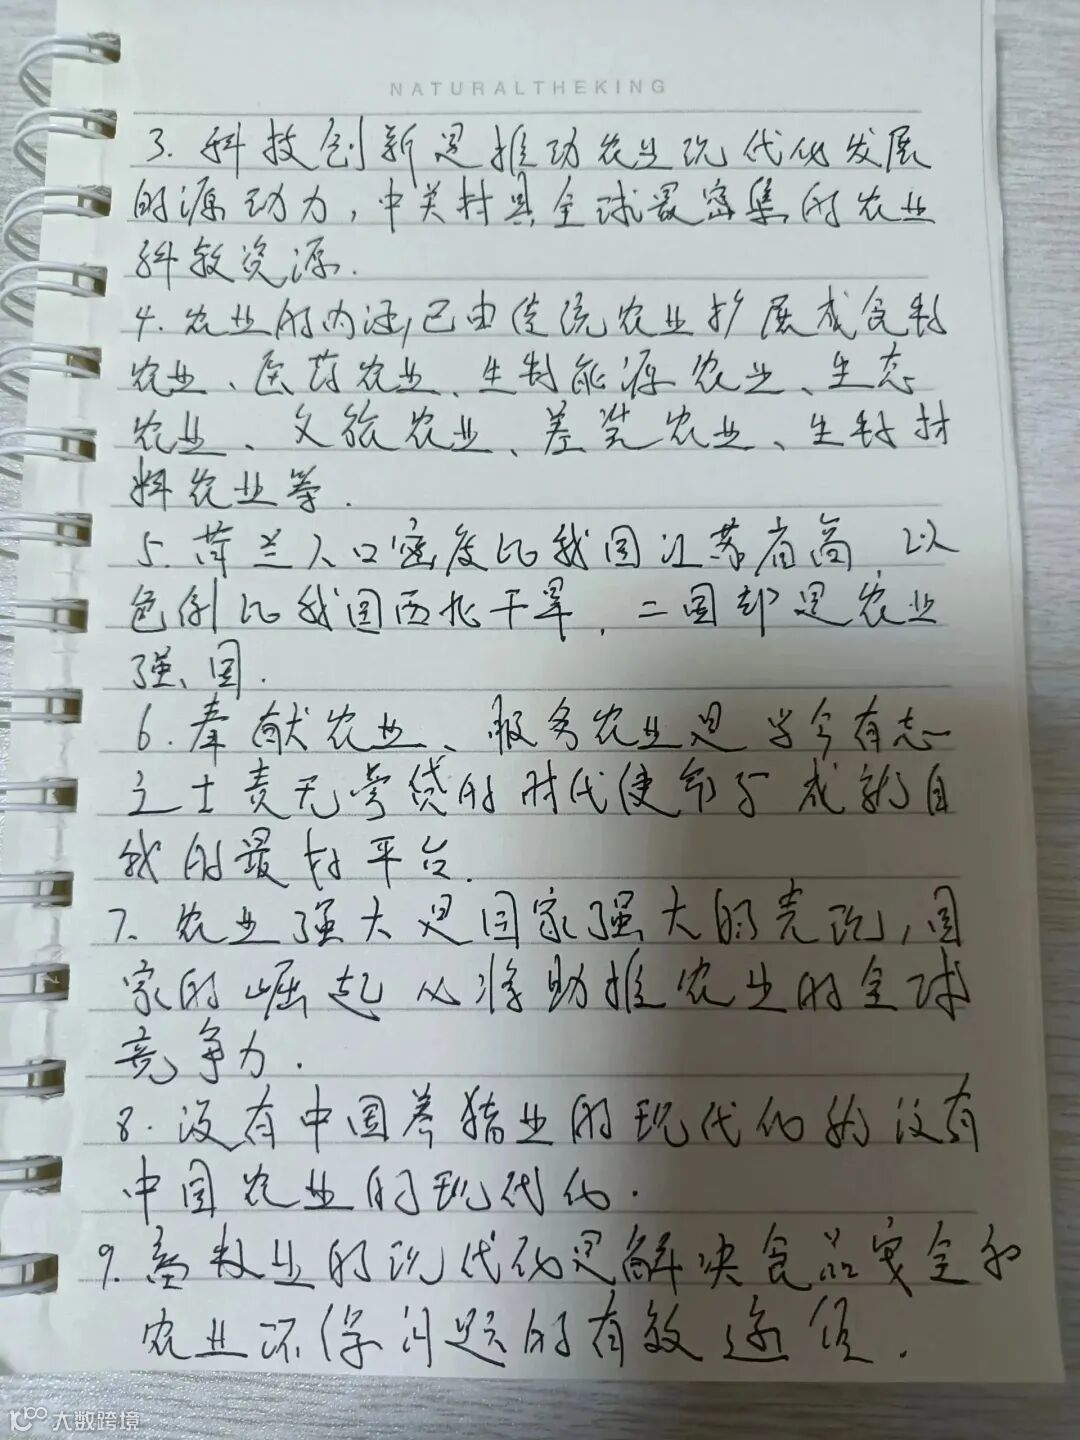 NATURALTHEKING
3. 科技创新是推动农业现代化发展
的源动力,中关村具全球最密集的农业
科教资源.
4. 农业的内涵,已由传统农业扩展成食物
农业、医药农业、生物能源农业、生态
农业、文旅农业、差装农业、生物材
料农业等.
5. 荷兰人口密度比我国江苏省高,以
色列比我国西北干旱,二国却是农业
强国.
6. 奉献农业、服务农业是当今有志
之士责无旁贷的时代使命与成就自
我的最好平台.
7. 农业强大是国家强大的表现,国
家的崛起必将助推农业的全球
竞争力.
8. 没有中国养猪业的现代化的没有
中国农业的现代化.
9. 畜牧业的现代化是解决食品安全和
农业环保问题的有效途径.
大数跨境